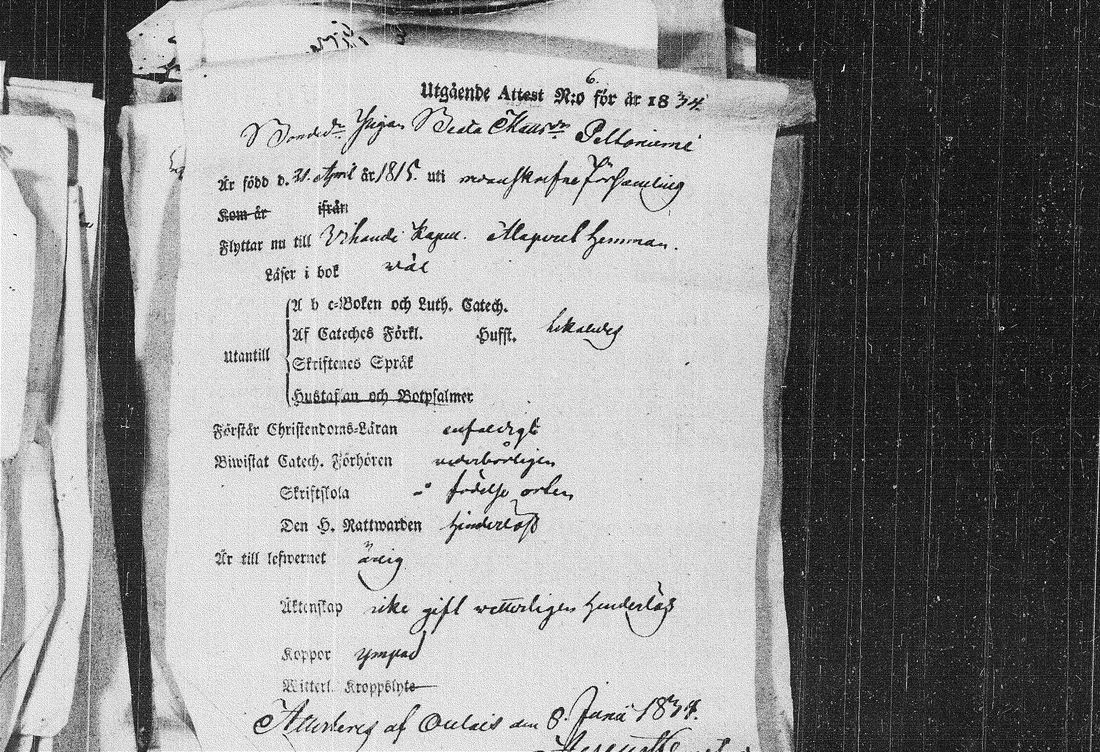 6.
Utgående Attest N:o för år 1834.
Bonded:n Pigan Beata Matts d:r Peltoniemi
Är född d. 21. April år 1815. uti ofvanskrefne Församling
Kom år ifrån
Flyttar nu till Vihandi Kapell. Alapovel hemman.
Läser i bok väl
A b c-Boken och Luth. Catech.
Af Cateches Förkl. Husst. likaledes
Utantill
Skriftenes Språk
Hustaflan och Botpsalmer
Förstår Christendoms-Läran enfaldigt
Biwistat Catech. Förhören vederbörligen
Skriftskola i födelse orten
Den H. Nattwarden hinderlös
Är till lefwernet ärlig
Äktenskap icke gift vetterligen hinderlös
Koppor ympad
Witterl. Kroppslyte
Attesteras af Oulais den 8. Junii 1834.